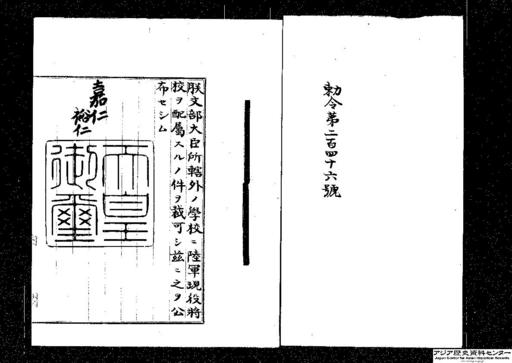 勅令第二百四十六號
朕文部大臣所轄外ノ學校ニ陸軍現役將
校ヲ配屬スルノ件ヲ裁可シ茲ニ之ヲ公
布セシム
嘉仁
裕仁
天皇
御璽
アジア歴史資料センター
Japan Center for Asian Historical Records